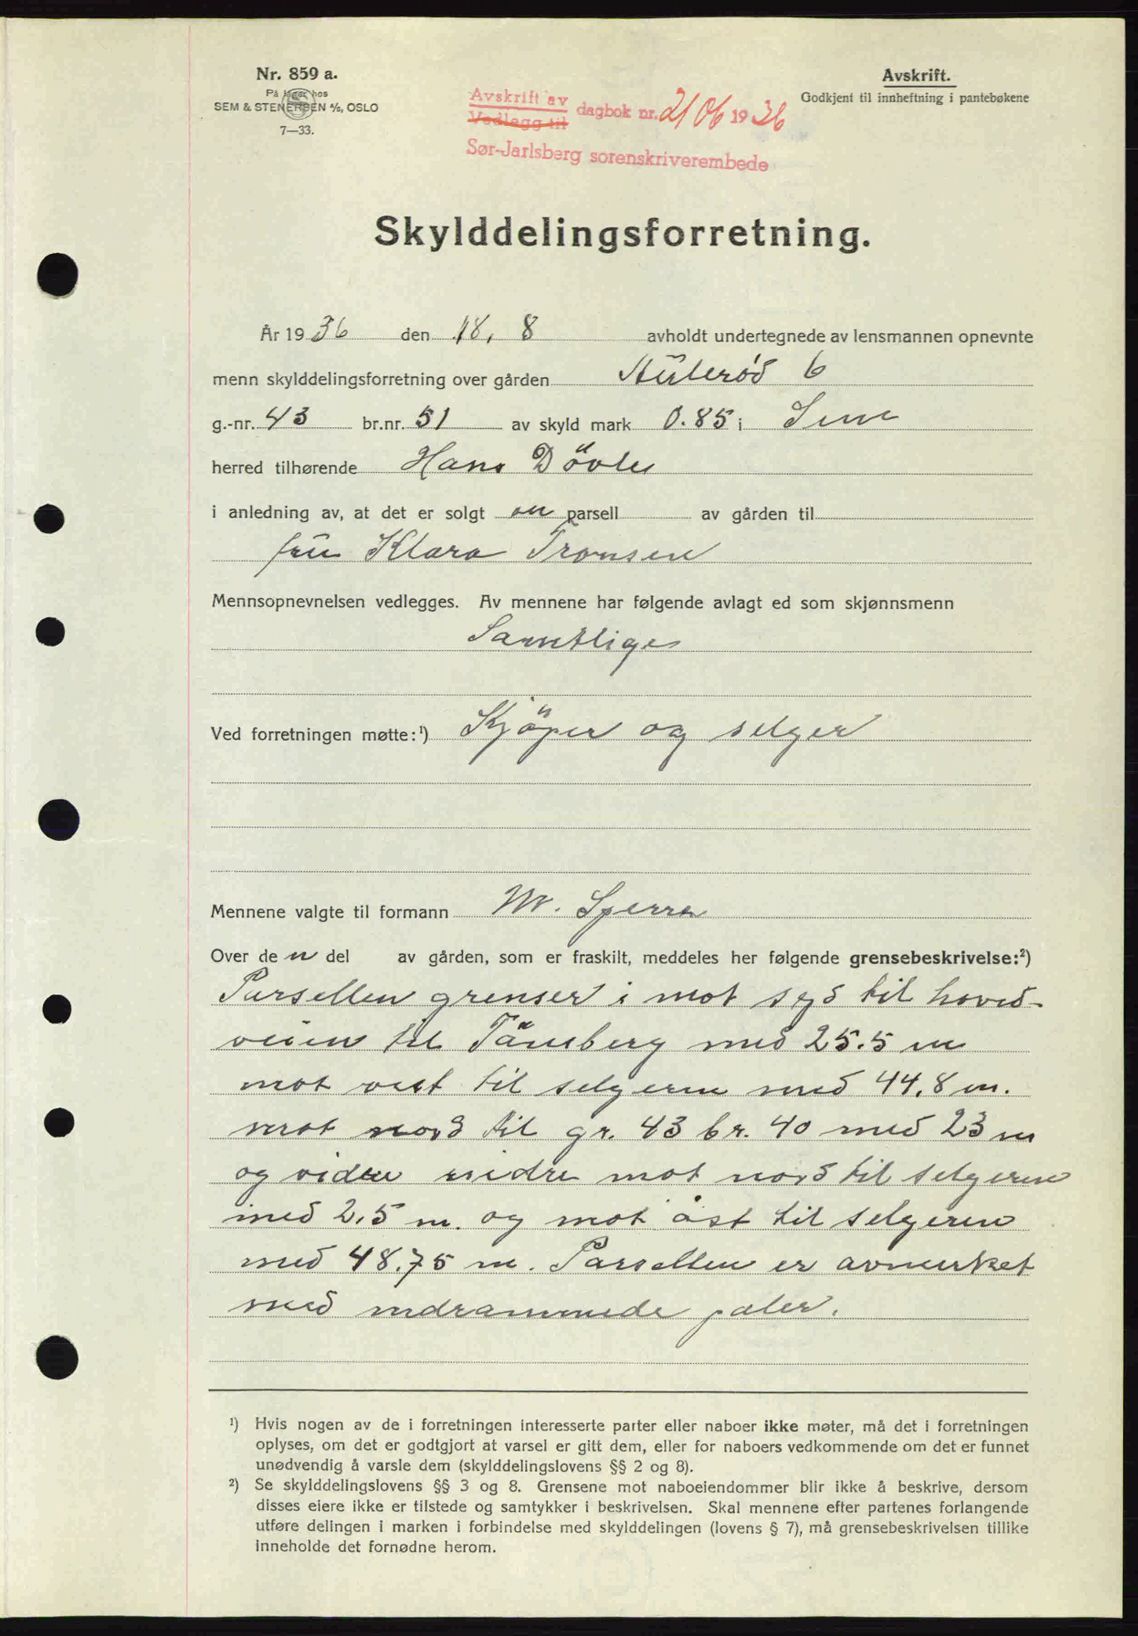 Nr. 859 a.
På lager hos
SEM & STENERSEN A/S, OSLO
7—33.
Avskrift.
Godkjent til innheftning i pantebøkene
Avskrift av
Vedlegg til
dagbok nr. 2106 1936
Sør-Jarlsberg sorenskriverembede
Skylddelingsforretning.
År 1936 den 18. 8 avholdt undertegnede av lensmannen opnevnte
menn skylddelingsforretning over gården Aulerød 6
g.-nr. 43 br.nr. 51 av skyld mark 0.85 i Sem
herred tilhørende Hans Dövle
i anledning av, at det er solgt en parsell av gården til
fru Klara Tronsen
Mennsopnevnelsen vedlegges. Av mennene har følgende avlagt ed som skjønnsmenn
Samtlige
Ved forretningen møtte:¹) Kjöper og selger
Mennene valgte til formann M. Sperra
Over den del av gården, som er fraskilt, meddeles her følgende grensebeskrivelse:²)
Parsellen grenser i mot syd til hoved-
veien til Tönsberg med 25.5 m
mot vest til selgeren med 44.8 m.
mot nord til gr. 43 br. 40 med 23 m
og videre mot nord til selgeren
med 2.5 m. og mot öst til selgeren
med 48.75 m. Parsellen er avmerket
med nedrammede pæler.
¹) Hvis nogen av de i forretningen interesserte parter eller naboer ikke møter, må det i forretningen
oplyses, om det er godtgjort at varsel er gitt dem, eller for naboers vedkommende om det er funnet
unødvendig å varsle dem (skylddelingslovens §§ 2 og 8).
²) Se skylddelingslovens §§ 3 og 8. Grensene mot naboeiendommer blir ikke å beskrive, dersom
disses eiere ikke er tilstede og samtykker i beskrivelsen. Skal mennene efter partenes forlangende
utføre delingen i marken i forbindelse med skylddelingen (lovens § 7), må grensebeskrivelsen tillike
inneholde det fornødne herom.